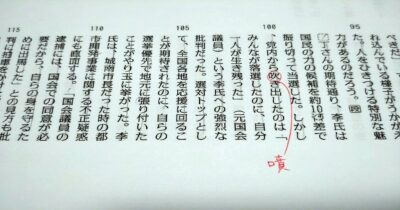 95
100
105
110
115
れ込んでいる様子がうかがえ
た。人をひきつける特別な魅
力があるのだろう。
だ」の期待通り、李氏は
国民の力の候補を約10㌽差で
振り切って当選した。しかし
、党内から吹き出したのは「
噴
みんなが落選したのに、自分
一人が生き残った」(元国会
議員)という李氏への強烈な
批判だった。選対トップとし
て、全国各地を応援に回るこ
とが期待されたのに、自らの
選挙優先で地元に張り付いた
ことがやり玉に挙がった。李
氏は、城南市長だった時の都
市開発事業に関する不正疑惑
にも直面する。「国会議員の
逮捕には、国会での同意が必
要だから、自らの身を守るた
めに出馬した」との見方も批
判に拍車をか